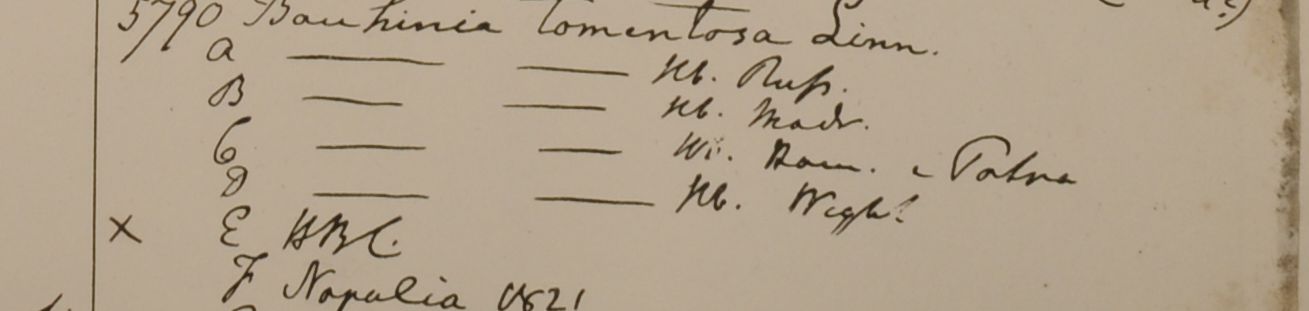 5790 Bauhinia tomentosa Linn.
A —— —— Hb. Russ.
B —— —— Hb. Madr.
C —— —— Hb. Ham. e Patna
D —— —— Hb. Wight
× E HBC.
F Napalia 1821